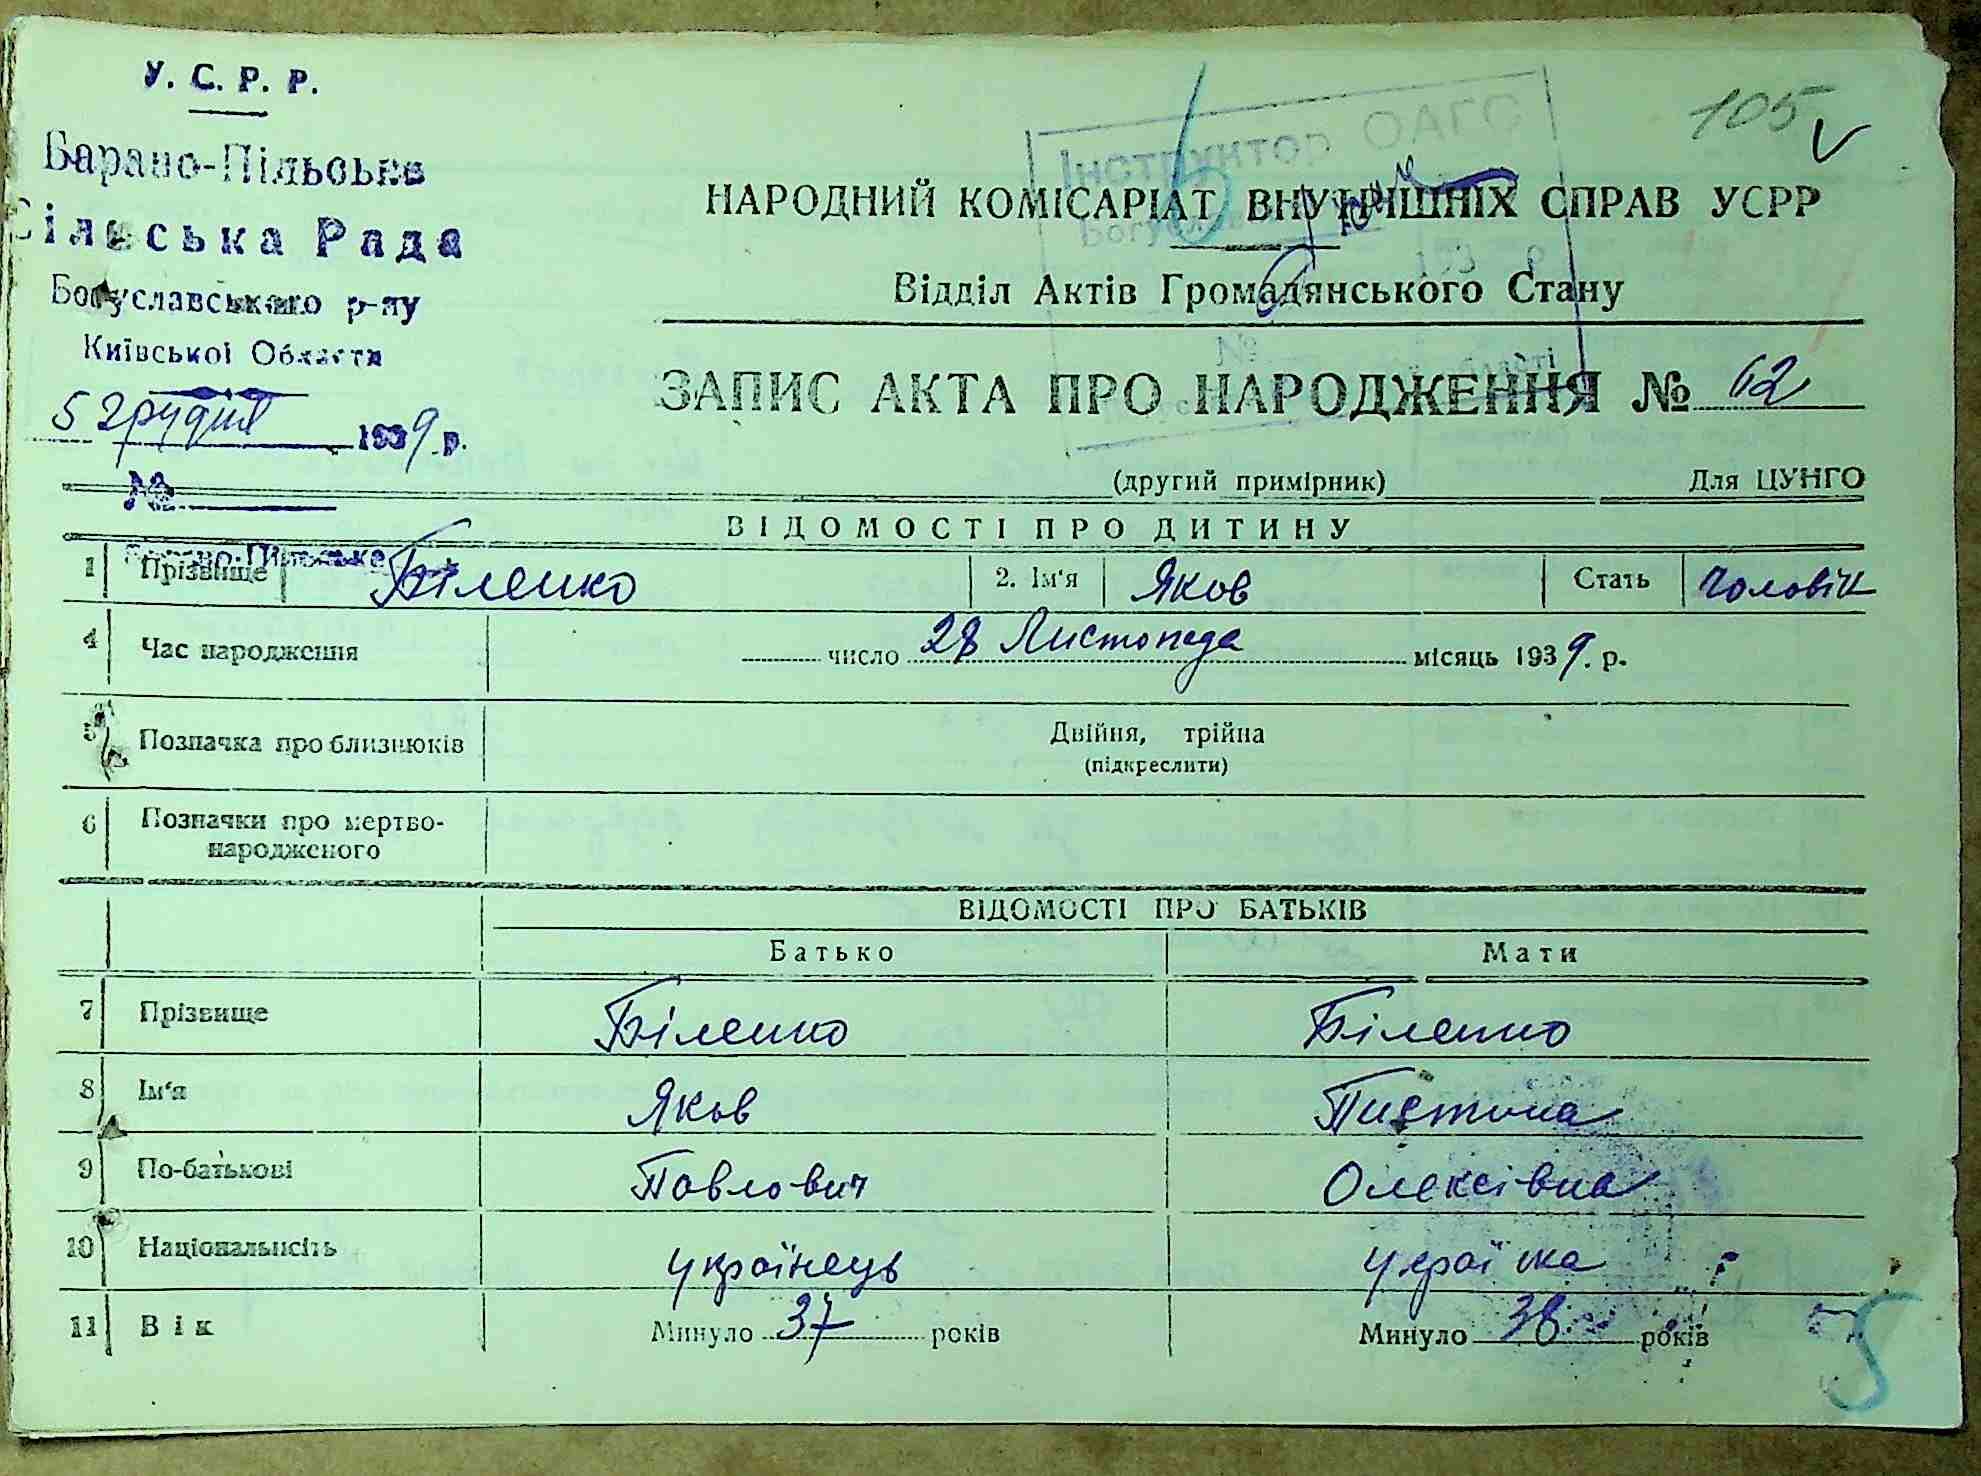 105
У. С. Р. Р.
Барано-Пільська
Сільська Рада
Богуславського р-ну
Київської Области
5 грудня 1939 р.
№
Інструктор ОАГС
НАРОДНИЙ КОМІСАРІАТ ВНУТРІШНІХ СПРАВ УСРР
Відділ Актів Громадянського Стану
ЗАПИС АКТА ПРО НАРОДЖЕННЯ № 62
(другий примірник) Для ЦУНГО
ВІДОМОСТІ ПРО ДИТИНУ
Барано-Пільська
1 Прізвище Біленко 2. Ім'я Яков Стать чоловік
4 Час народження число 28 Листопада місяць 1939. р.
5 Позначка про близнюків Двійня, трійна
(підкреслити)
6 Позначки про мертво-
народженого
ВІДОМОСТІ ПРО БАТЬКІВ
Батько Мати
7 Прізвище Біленко Біленко
8 Ім'я Яков Пистина
9 По-батькові Павлович Олексівна
10 Національність українець
11 Вік Минуло 37 років Минуло 38 років
5